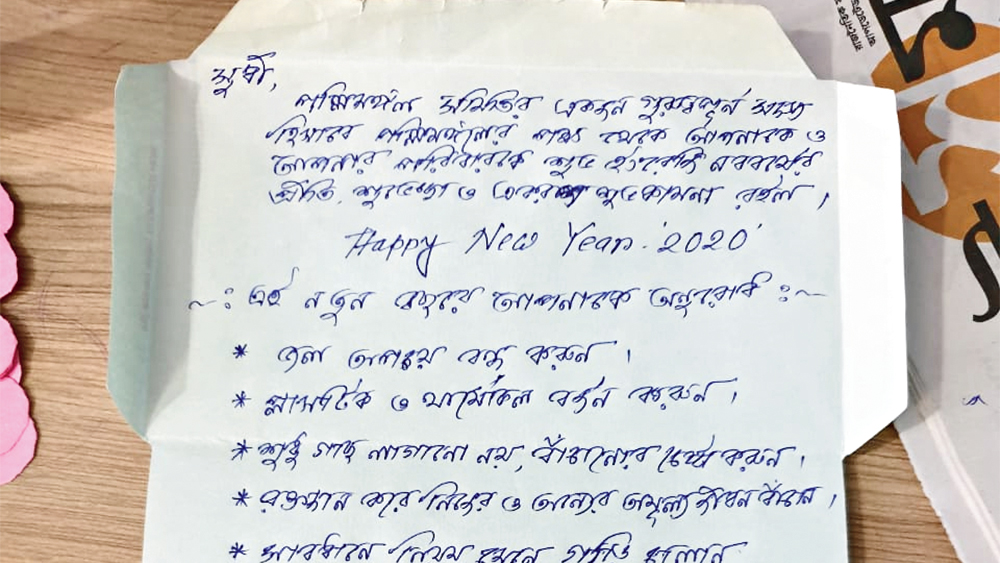 সুধী,
পল্লিমঙ্গল সমিতির একজন গুরুত্বপূর্ণ সদস্য
হিসাবে পল্লিমঙ্গলের পক্ষ থেকে আপনাকে ও
আপনার পরিবারকে শুভ ইংরেজি নববর্ষের
প্রীতি, শুভেচ্ছা ও একরাশ শুভকামনা রইল।
Happy New Year '2020'
~: এই নতুন বছরে আপনাকে অনুরোধ :~
* জল অপচয় বন্ধ করুন।
* প্লাসটিক ও থার্মোকল বর্জন করুন।
* শুধু গাছ লাগানো নয়, বাঁচানোর চেষ্টা করুন।
* রক্তদান করে নিজের ও অন্যের অমূল্য জীবন বাঁচান।
* সাবধানে নিয়ম মেনে গাড়ি চালান